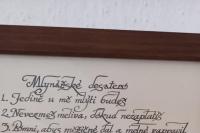 Mlynářské desatero
1. Jedině u mě mlíti budeš
2. Nevezmeš meliva, dokud nezaplatíš
3. Pomni, abys měsíčně dal a mělně